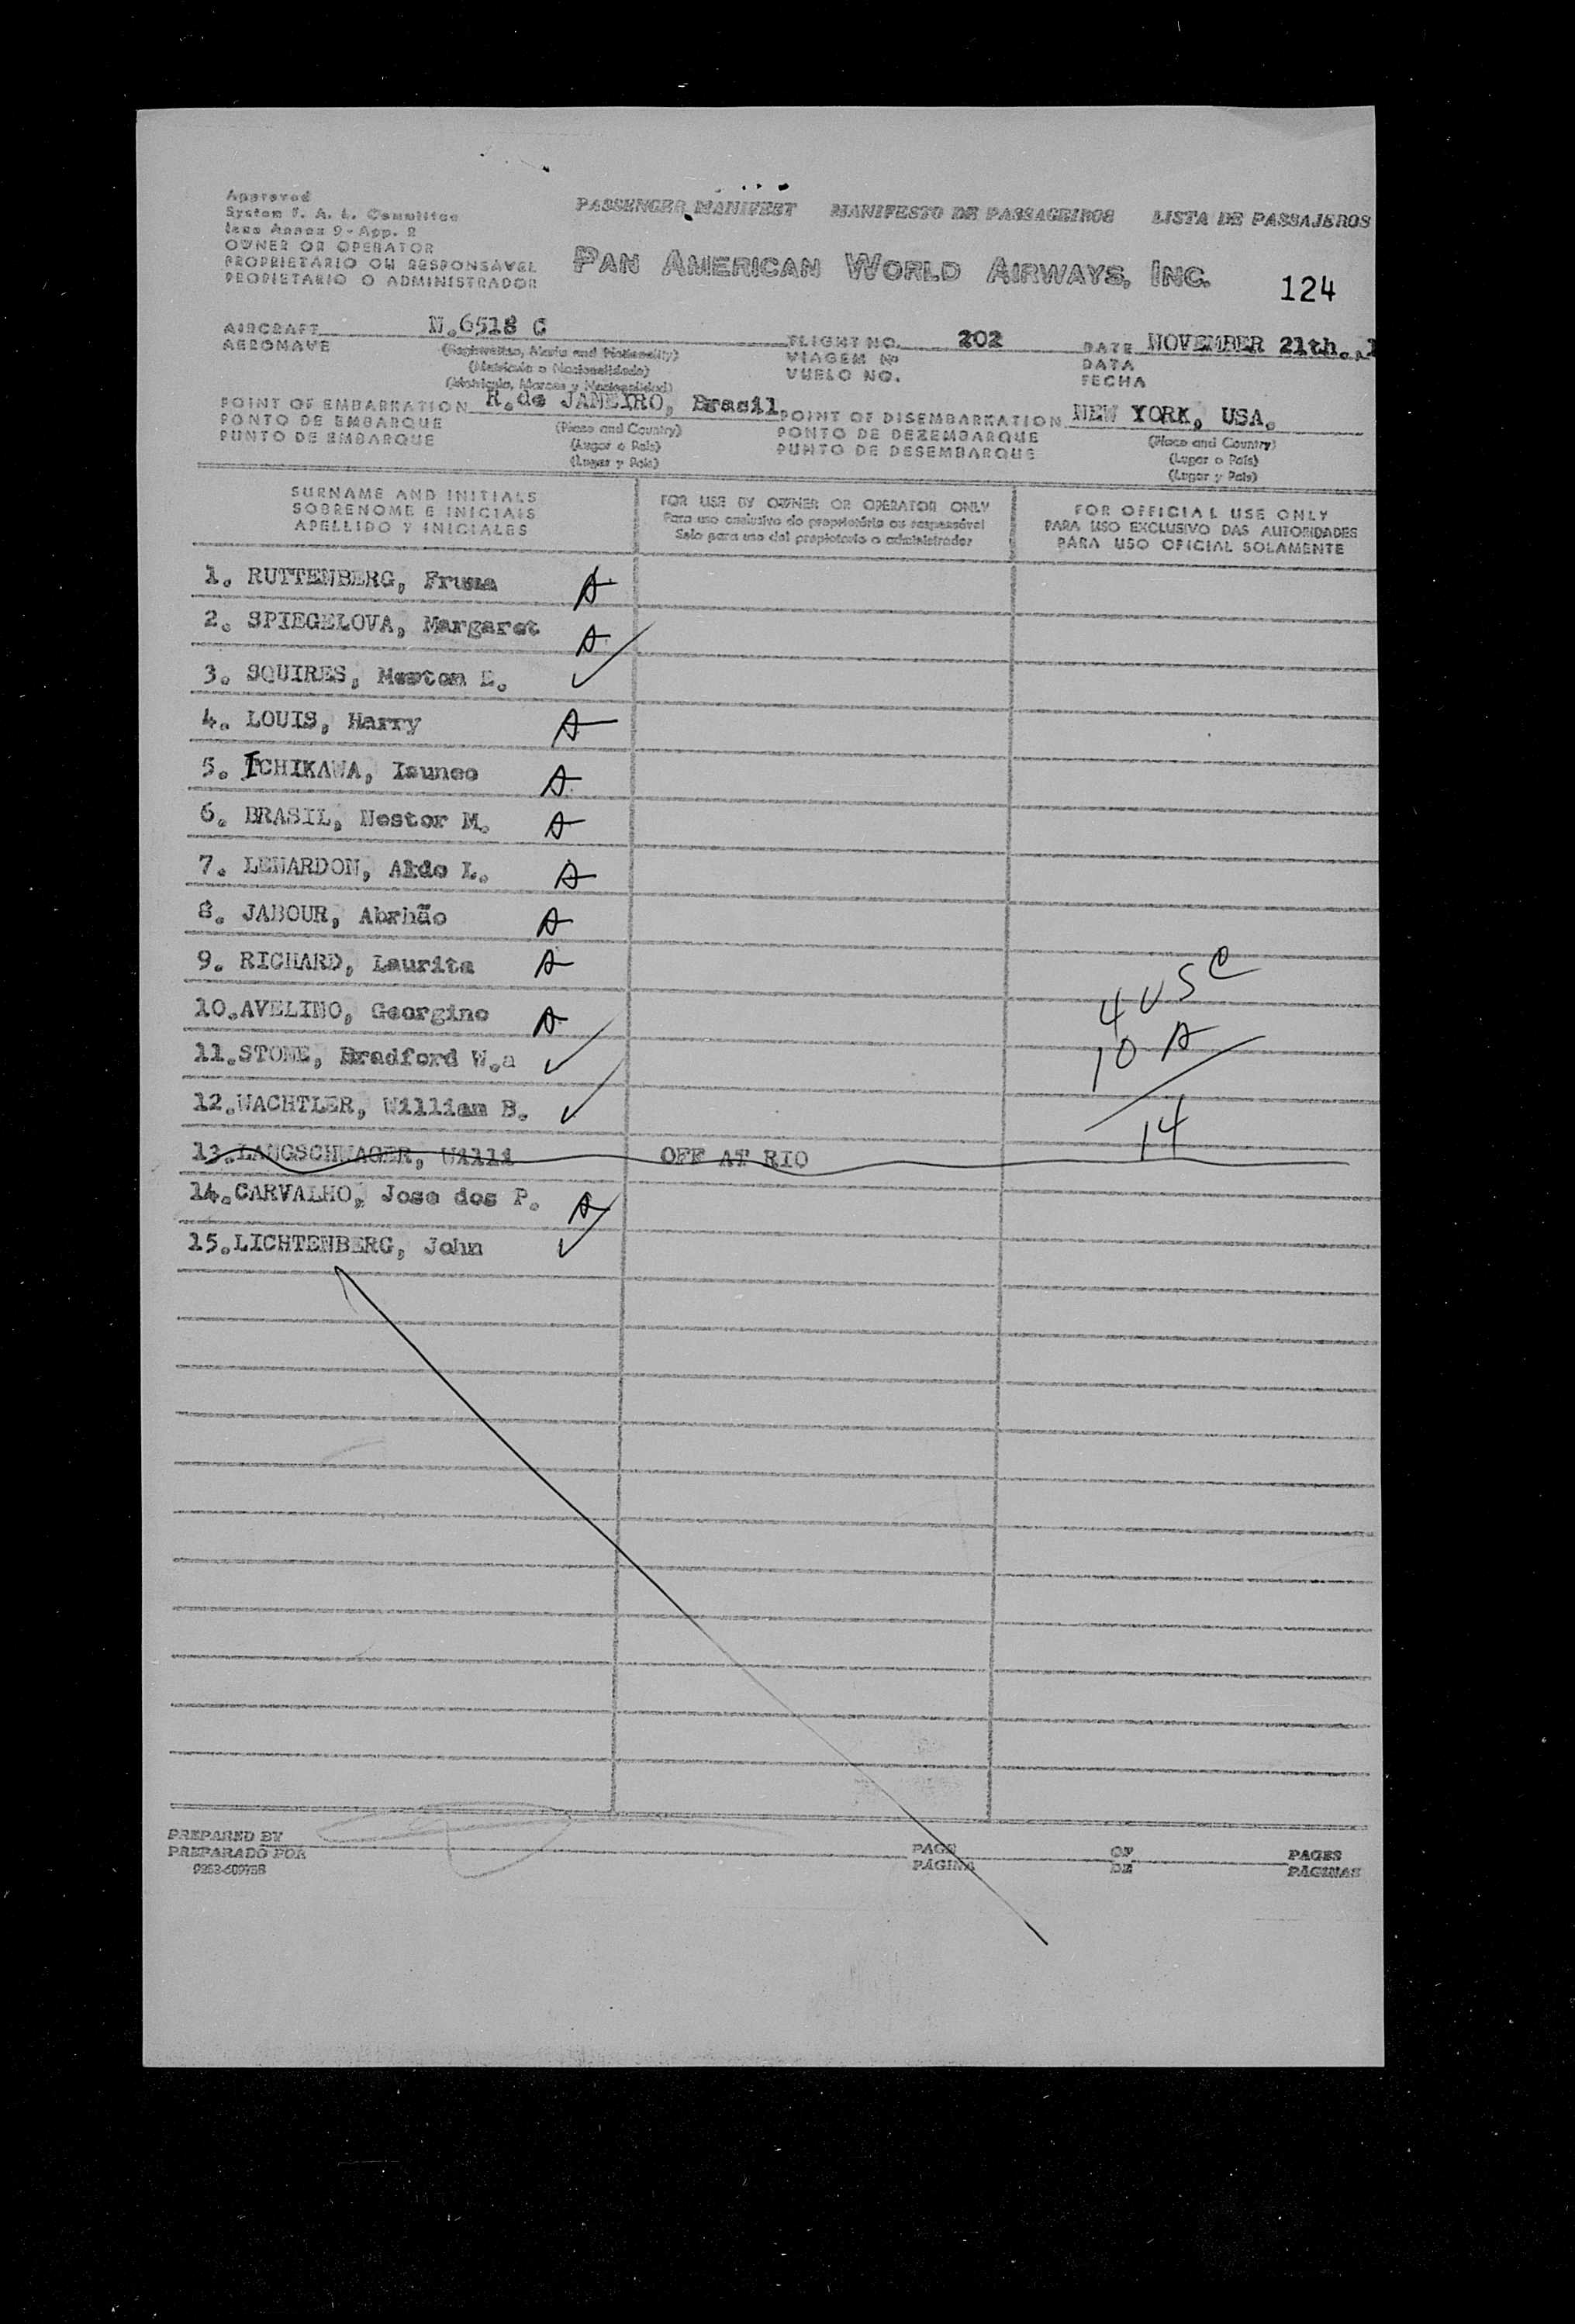 Approved
System F. A. L. Committee
Icao Annex 9 - App. 2
OWNER OR OPERATOR
PROPRIETÁRIO OU RESPONSÁVEL
PROPIETARIO O ADMINISTRADOR
PASSENGER MANIFEST MANIFESTO DE PASSAGEIROS LISTA DE PASSAJEROS
PAN AMERICAN WORLD AIRWAYS, INC.
124
AIRCRAFT N.6518 C FLIGHT NO. 202 DATE NOVEMBER 21th.,1
AERONAVE (Registration, Marks and Nationality) VIAGEM Nº DATA
(Matricula o Nacionalidade) VUELO NO. FECHA
(Matricula, Marcas y Nacionalidad)
POINT OF EMBARKATION R.de JANEIRO, Brasil. POINT OF DISEMBARKATION NEW YORK, USA.
PONTO DE EMBARQUE (Place and Country) PONTO DE DEZEMBARQUE (Place and Country)
PUNTO DE EMBARQUE (Lugar o País) PUNTO DE DESEMBARQUE (Lugar o País)
(Lugar y País) (Lugar y País)
SURNAME AND INITIALS FOR USE BY OWNER OR OPERATOR ONLY FOR OFFICIAL USE ONLY
SOBRENOME E INICIAIS Para uso exclusivo do proprietário ou responsável PARA USO EXCLUSIVO DAS AUTORIDADES
APELLIDO Y INICIALES Solo para uso del propietario o administrador PARA USO OFICIAL SOLAMENTE
1. RUTTENBERG, Fruma A
2. SPIEGELOVA, Margaret A
3. SQUIRES, E.
4. LOUIS, Harry A
5. ICHIKAWA, Isuneo A
6. BRASIL, Nestor M. A
7. LENARDON, Aldo L. A
8. JABOUR, Abrhão A
9. RICHARD, Laurita A
4 USC
10.AVELINO, Georgino A
10 A
11.STONE, Bradford W.a
12.WACHTLER, William B.
14
13.LANGSCHWAGER, Willi OFF AT RIO
14.CARVALHO, Jose dos P. A
15.LICHTENBERG, John
PREPARED BY PAGE OF PAGES
PREPARADO POR PÁGINA DE PÁGINAS